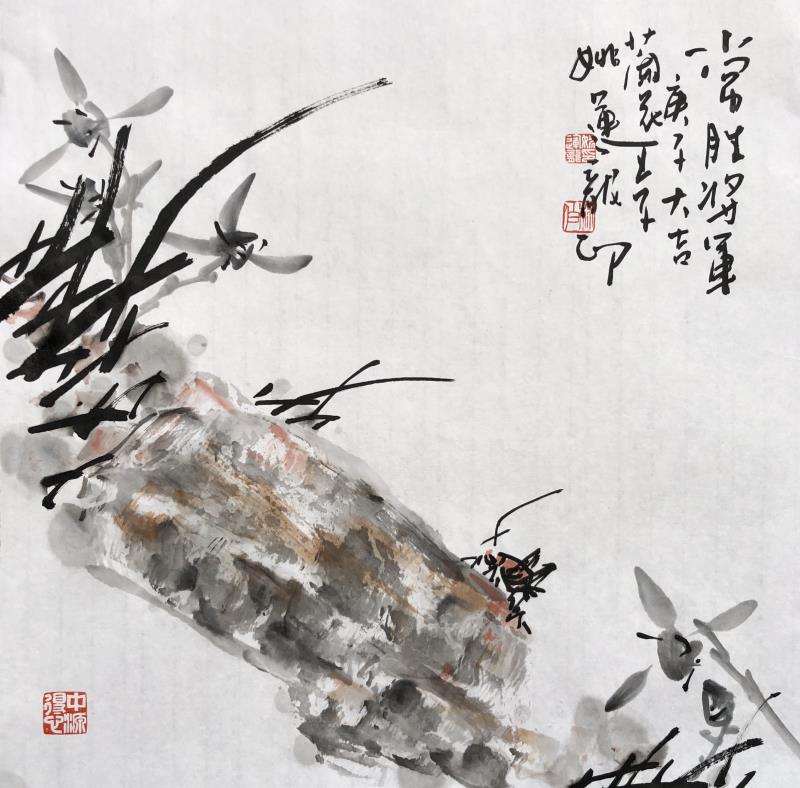 常胜将军
庚子大吉
蘭花王子
姚龍印
中得心源